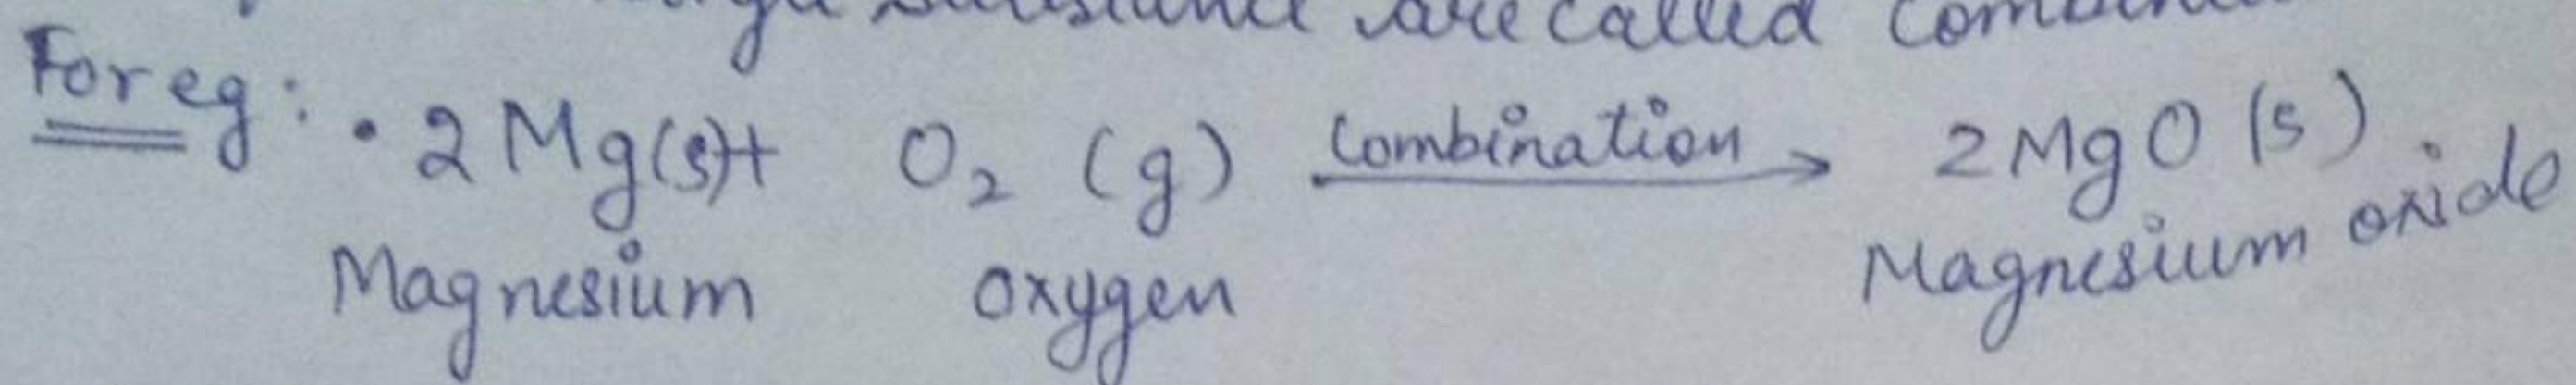 substance are called
For eg: • 2Mg(s)+ O₂ (g) Combination → 2MgO (s)
Magnesium oxygen Magnesium oxide